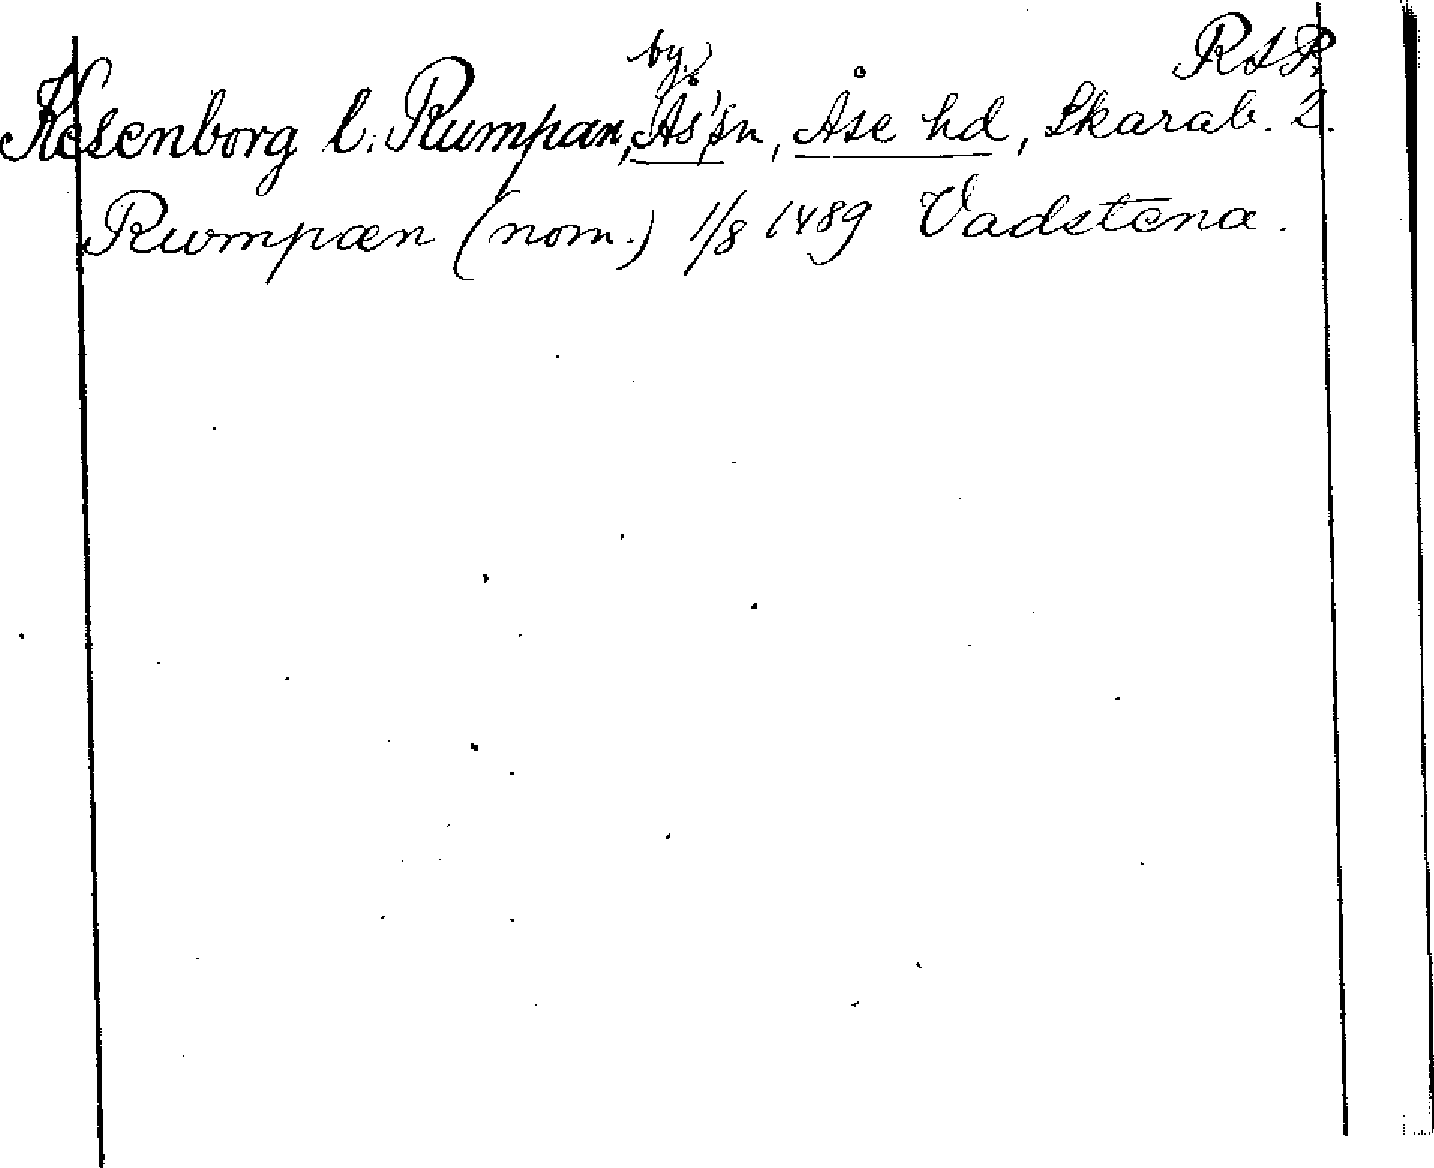 RAP.
by,
Kesenborg l. Rumpan, Ås sn, Åse hd, Skarab. l.
Rumpæn (nom.) 1/8 1489 Vadstena.